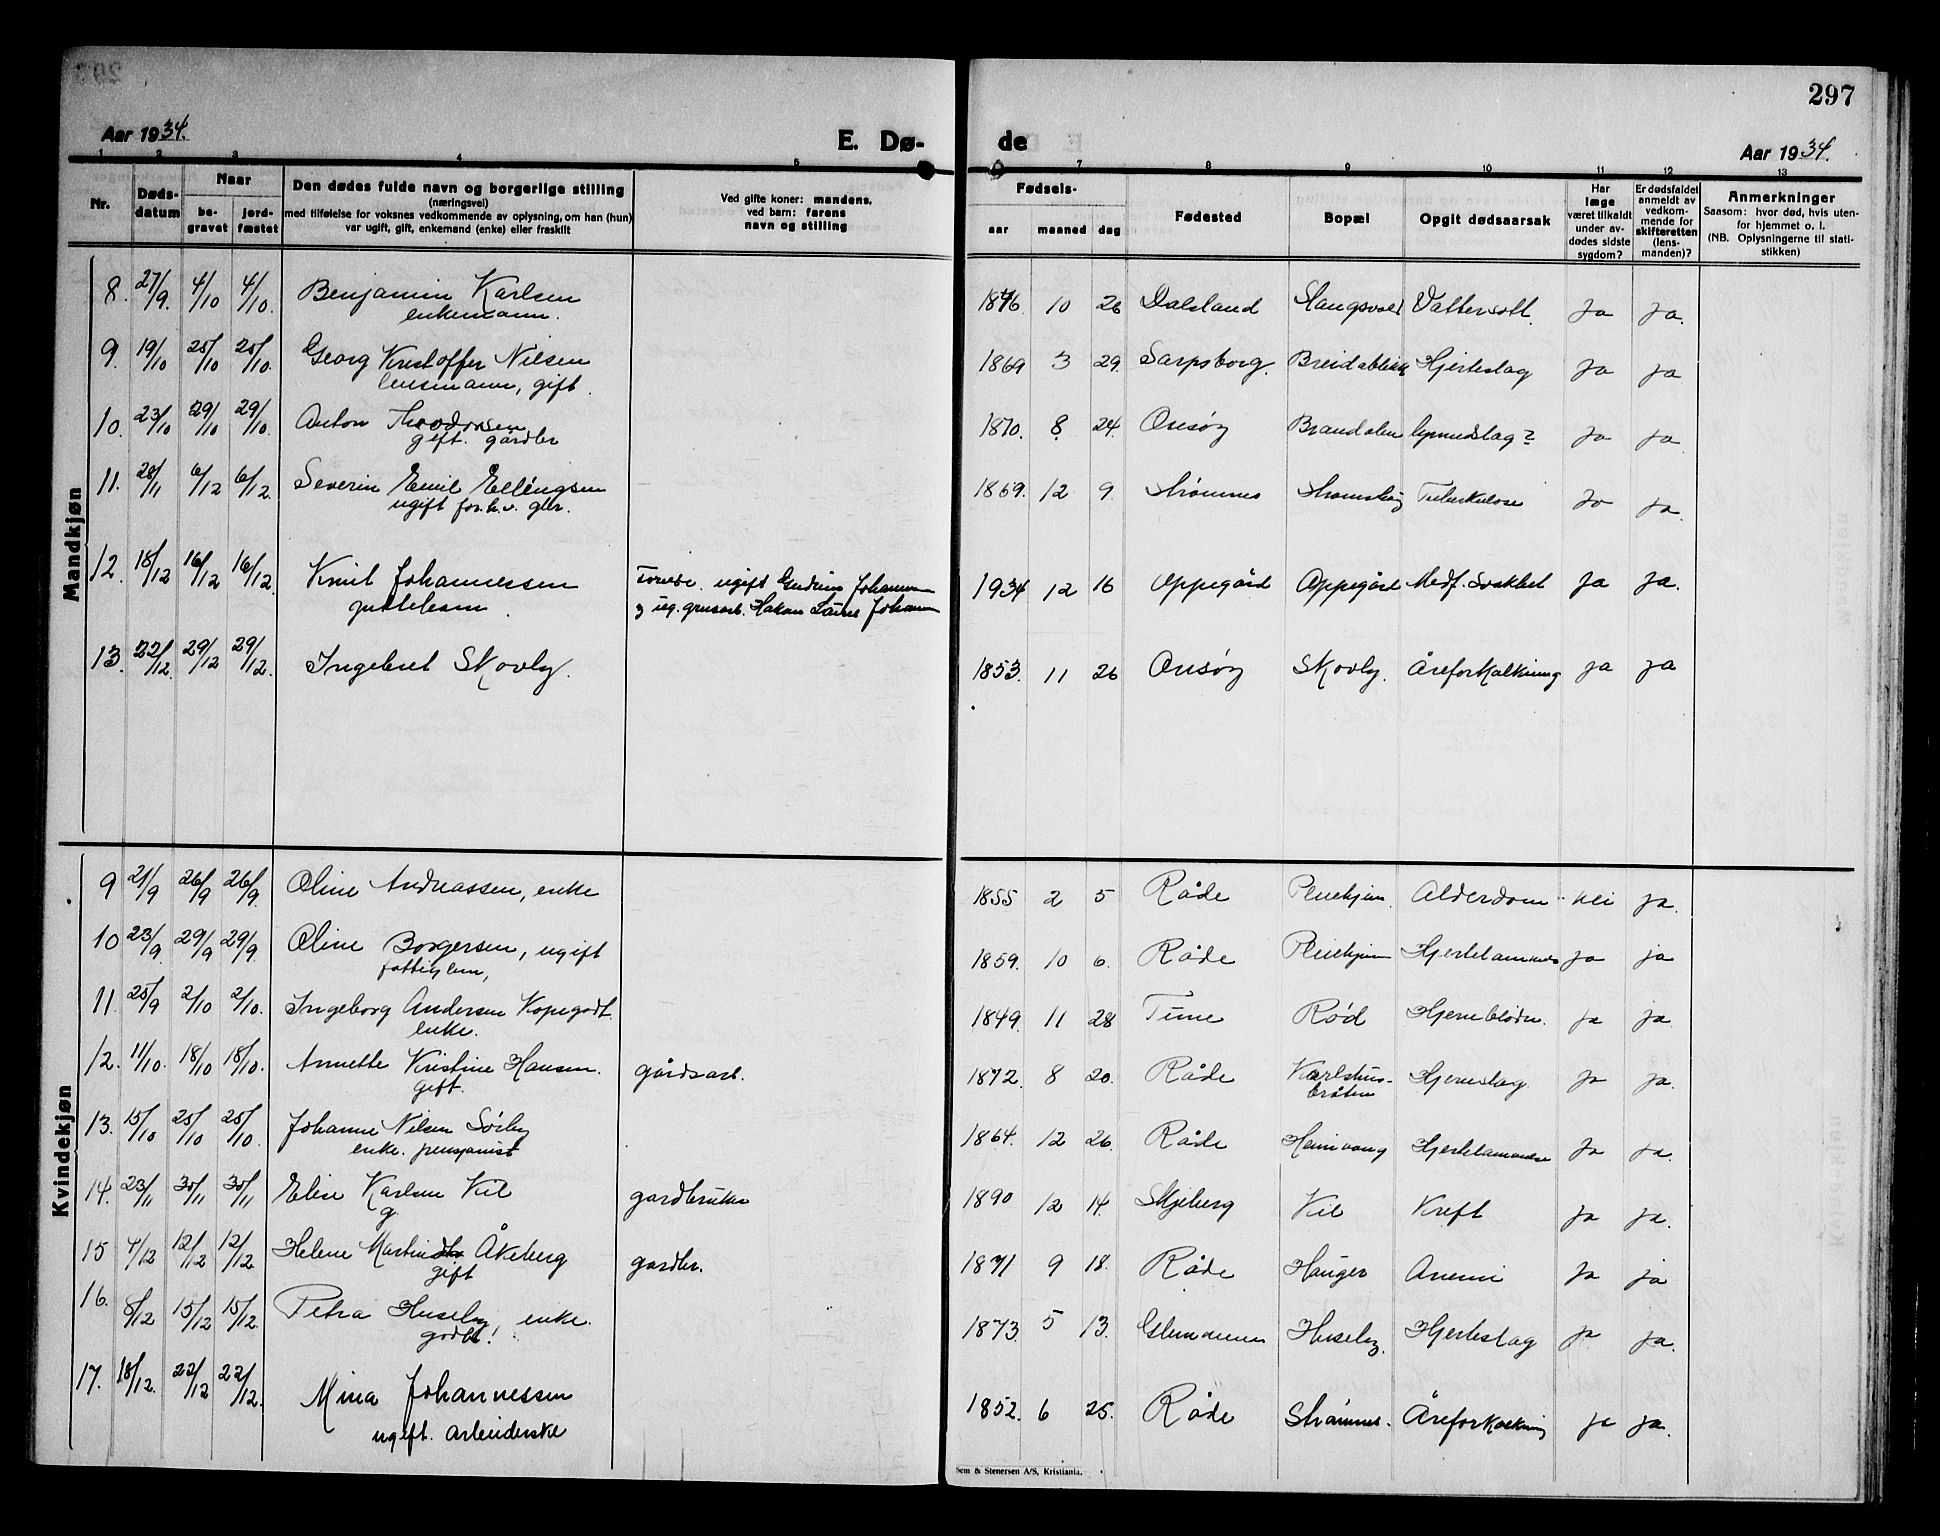 297
Aar 1934.
E. Dø-
de
Aar 1934.
1 2 3 4 5 6 7 8 9 10 11 12 13
Nr.
Døds-
datum
Naar
be-
gravet
jord-
fæstet
Den dødes fulde navn og borgerlige stilling
(næringsvei)
med tilføielse for voksnes vedkommende av oplysning, om han (hun)
var ugift, gift, enkemand (enke) eller fraskilt
Ved gifte koner: mandens,
ved barn: farens
navn og stilling
Fødsels-
aar
maaned
dag
Fødested
Bopæl
Opgit dødsaarsak
Har
læge
været tilkaldt
under av-
dødes sidste
sygdom?
Er dødsfaldet
anmeldt av
vedkom-
mende for
skifteretten
(lens-
manden)?
Anmerkninger
Saasom: hvor død, hvis uten-
for hjemmet o. l.
(NB. Oplysningerne til stati-
stikken)
Mandkjøn
8. 27/9. 4/10 4/10. Benjamin Karlsen 10 26 Dalsland Vattersott. Ja Ja.
enkemann.
9. 19/10 25/10 25/10. Georg Kristoffer Nilsen 1869 3 29. Sarpsborg. Breidablikk Hjerteslag Ja Ja
lensmann, gift.
10. 23/10 29/10 29/10. Anton Theodorsen 1870. 8 24. Onsøy Brandalen Ja Ja
gift. gårdbr
11. 28/11 6/12 6/12. Severin Emil Ellingsen 1869. 12 9. Strømnes Tuberkulose Ja Ja.
ugift for.h.v. gbr.
12. 18/12 16/12 16/12. Knut Johannessen ugift Gudrun Johannssen 1934 12 16 Oppegård Oppegård Medf. Svakhet Ja Ja.
guttebarn. og ug. grusarb. Johannssen
13. 22/12. 29/12 29/12. Ingebret Skovly. 1853. 11 26 Onsøy Skovly. Åreforkalkning Ja Ja
Kvindekjøn
9 21/9 26/9 26/9. Oline Andreassen, enke 1855 2 5 Råde Pleiehjem Alderdom nei Ja.
10 23/9. 29/9 29/9. Oline Borgersen, ugift 1859. 10 6. Råde Pleiehjem Hjertelammelse Ja Ja
fattiglem,
11. 25/9 2/10 2/10. Ingeborg Andersen Kopegodt. 1849. 11 28 Tune Rød Hjerneblødn. Ja Ja
enke.
12. 11/10. 18/10 18/10. Annette Kristine Hansen. gårdsarb. 1872. 8 20. Råde Karlshus- Hjerneslag. Ja Ja.
gift. bråten
13. 15/10 25/10 25/10. Johanne Nilsen Sørby 1864. 12 26. Råde Heimvang Hjertelammelse Ja Ja.
enke. pensjonist
14. 23/11 30/11 30/11 Elise Karlsen Kil gardbruker 1890 12 14. Skjeberg Kil Kreft Ja Ja.
g.
15 4/12 12/12 12/12. Helene Martine Åkeberg gardbr. 1871 9 18. Råde Hauger Anemi Ja Ja
gift
16. 8/12 15/12 15/12. Petra Huseby, enke. 1873. 5 13. Glemmen Huseby. Hjerteslag Ja Ja.
17. 18/12. 22/12 22/12. Mina Johannessen 1852. 6 25. Råde Strømnes. Åreforkalkning Ja Ja.
ugift. arbeiderske
Sem & Stenersen A/S, Kristiania.